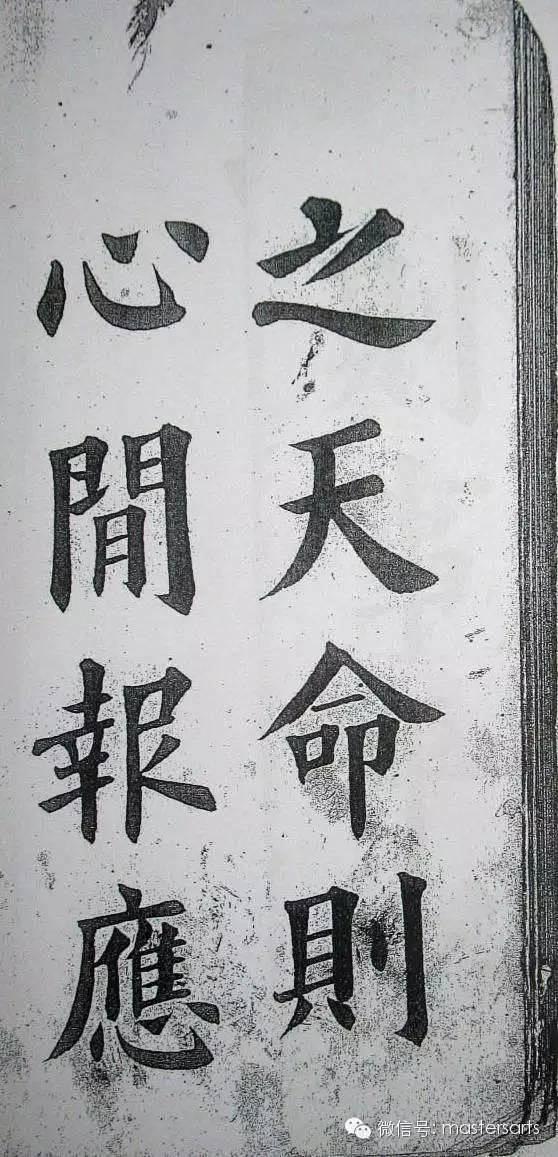 之天命則
心閒報應
微信号: mastersarts